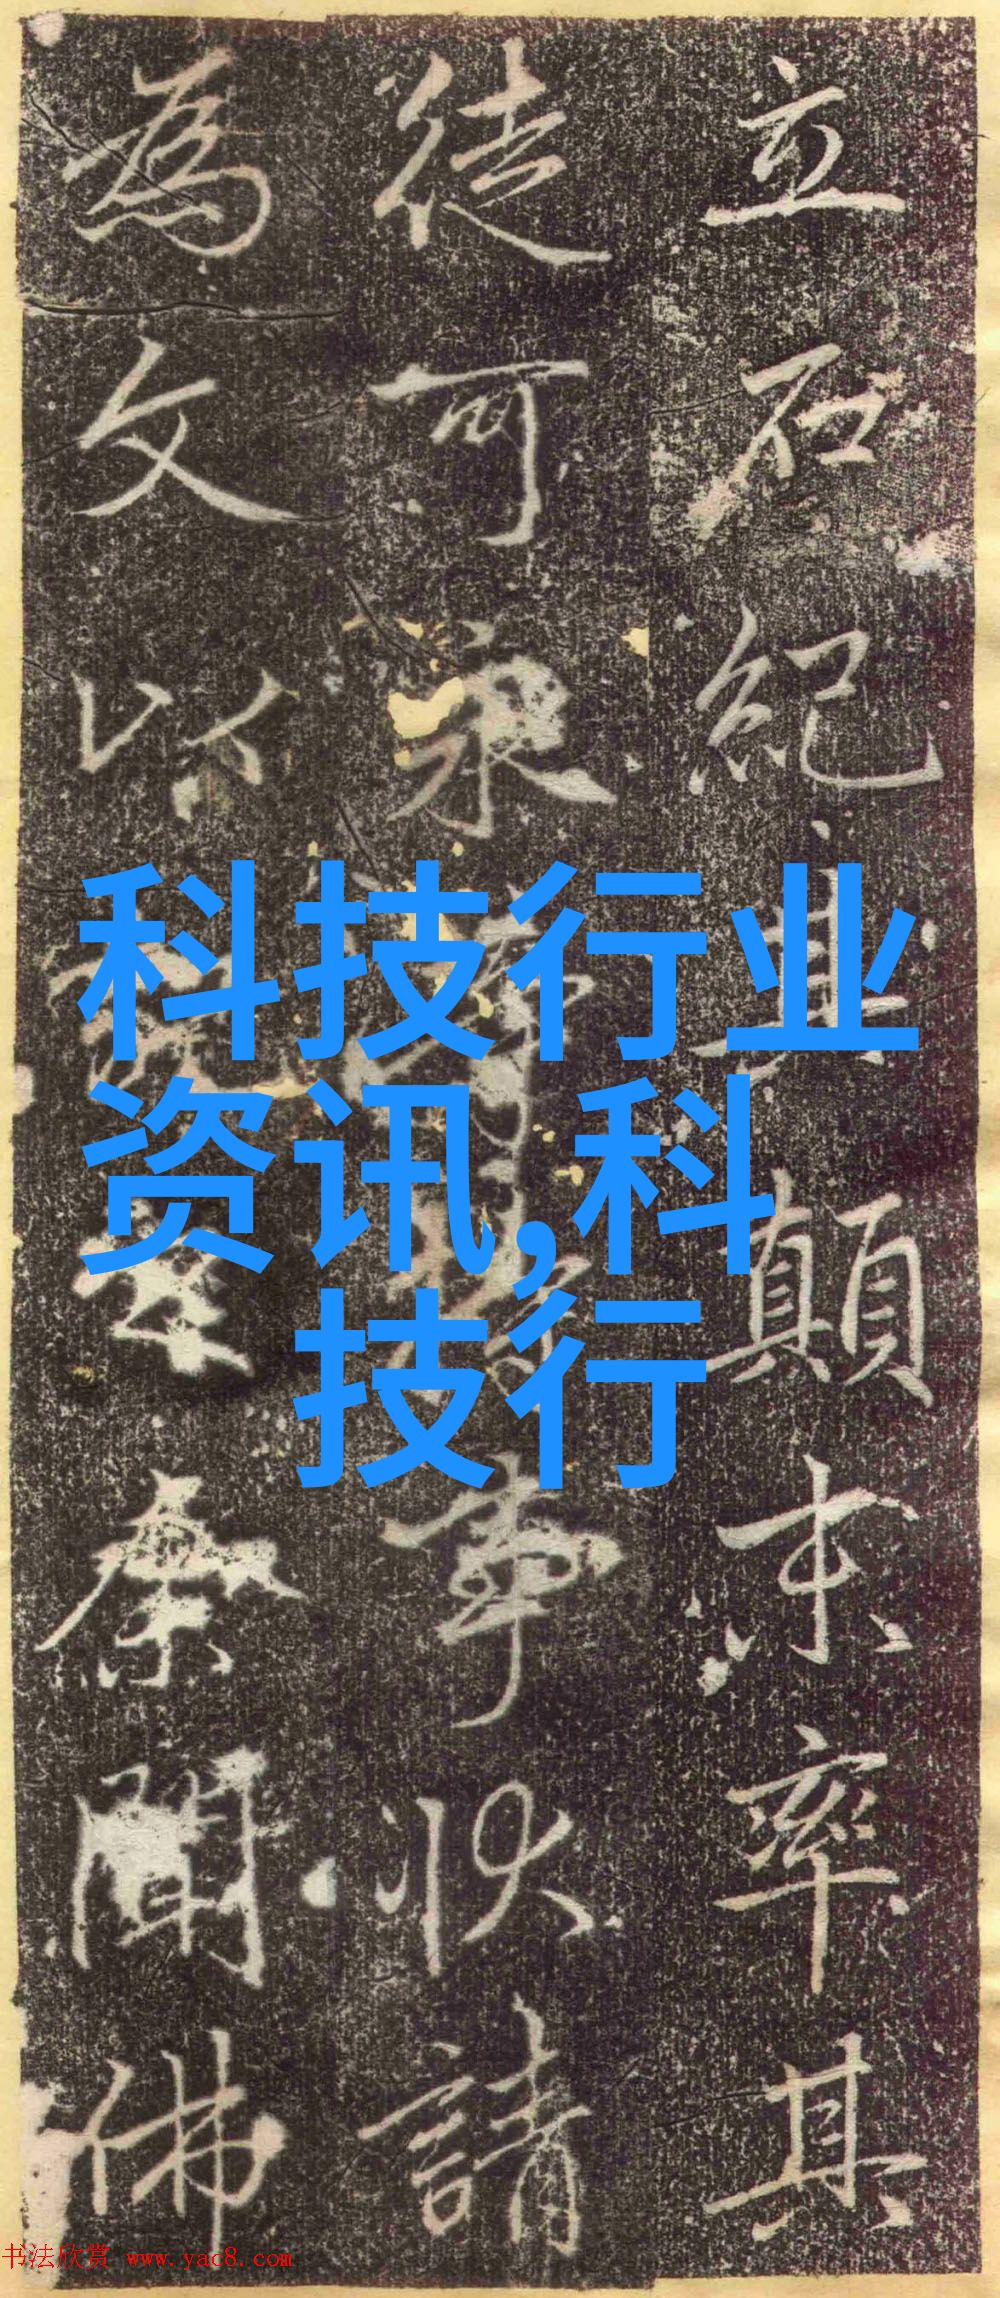 立石紀其顛末率其
徒可永事狀請
為文以余聞佛
科技行业
资讯,科
技行
书法欣赏 www.yac8.com